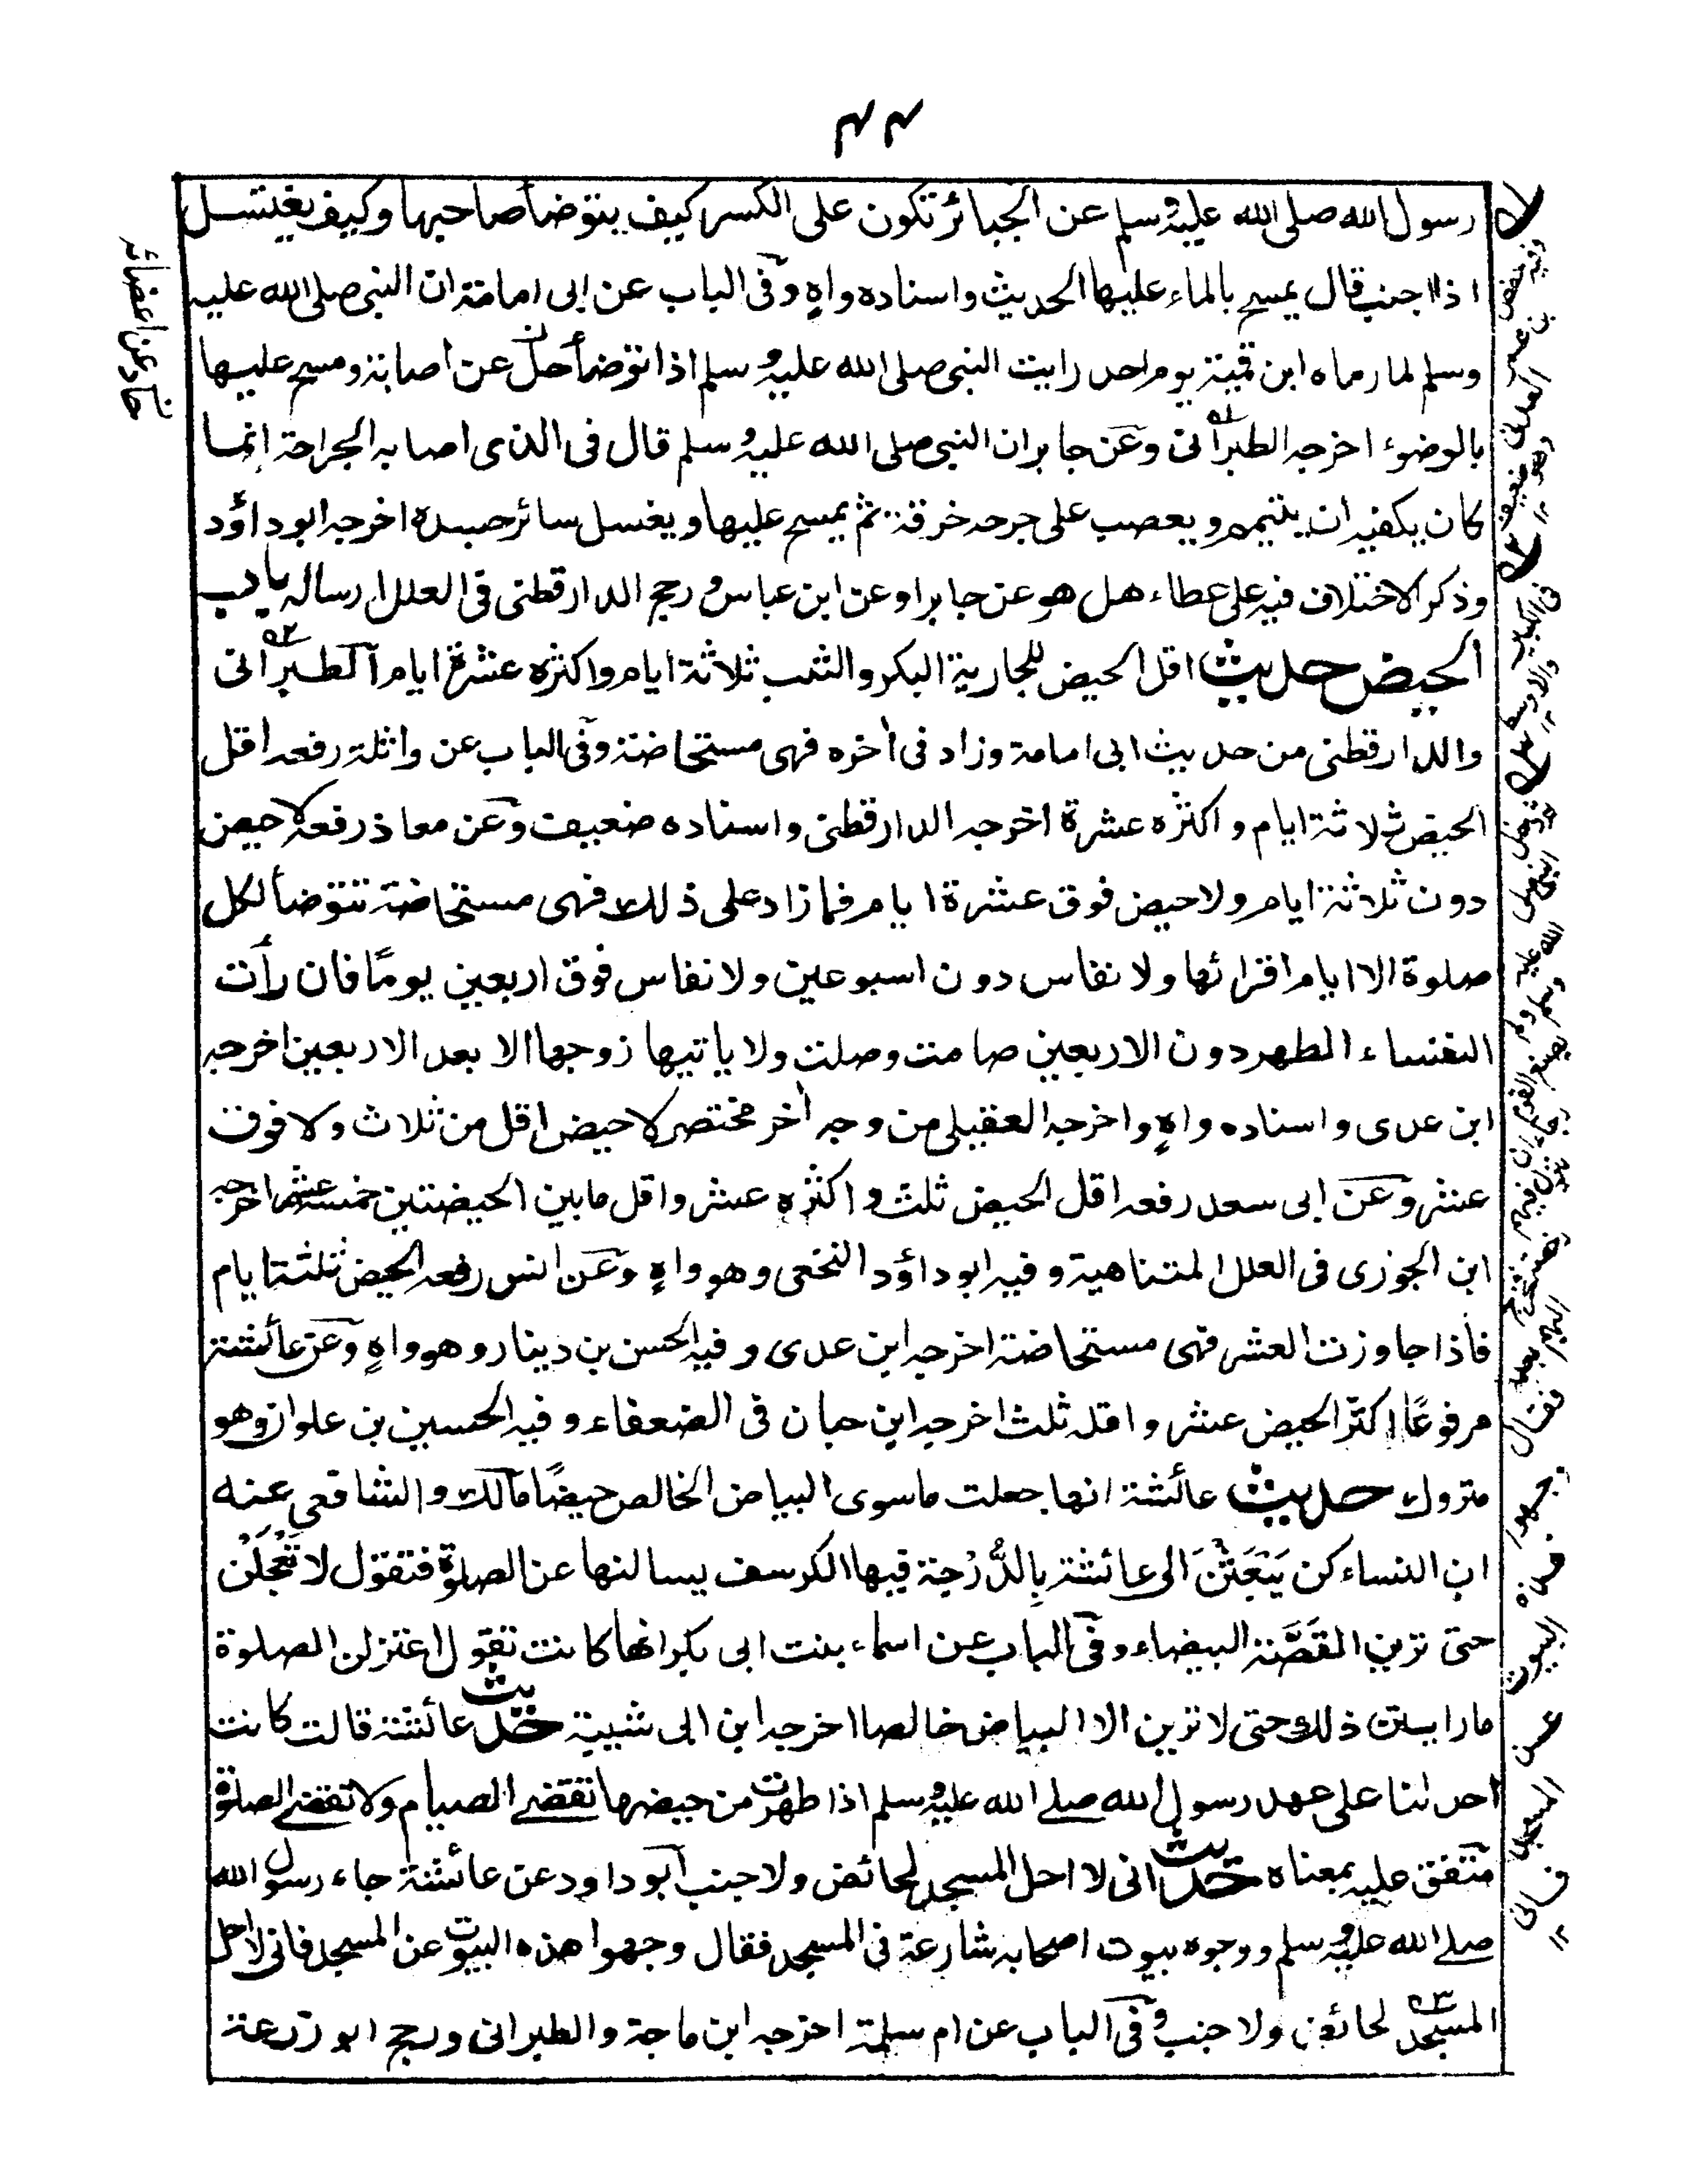 ۴۴
رسول الله صلى الله عليه وسلم عن الجبائر تكون على الكسر كيف يتوضأ صاحبها وكيف يغتسل
اذا اجنب قال يمسح بالماء عليها الحديث واسناده واهٍ وفى الباب عن ابى امامة ان النبى صلى الله عليه
وسلم لما رماه ابن قمئة يوم احد رايت النبى صلى الله عليه وسلم اذا توضأ حل عن اصابة ومسح عليها
بالوضوء اخرجه الطبرانى وعن جابر ان النبى صلى الله عليه وسلم قال فى الذى اصابه الجراحة انما
كان يكفيه ان يتيمم ويعصب على جرحه خرقة ثم يمسح عليها ويغسل سائر جسده اخرجه ابو داؤد
وذكر الاختلاف فيه على عطاء هل هو عن جابر او عن ابن عباس ورجح الدارقطنى فى العلل ارساله باب
الحيض حديث اقل الحيض للجارية البكر والثيب ثلاثة ايام واكثره عشرة ايام الطبرانى
والدارقطنى من حديث ابى امامة وزاد فى أخره فهى مستحاضة وفى الباب عن واثلة رفعه اقل
الحيض ثلاثة ايام واكثره عشرة اخرجه الدارقطنى واسناده ضعيف وعن معاذ رفعه لا حيض
دون ثلاثة ايام ولا حيض فوق عشرة ايام فما زاد على ذلك فهى مستحاضة تتوضأ لكل
صلوة الا ايام اقرائها ولا نفاس دون اسبوعين ولا نفاس فوق اربعين يومًا فان رأت
النفساء الطهر دون الاربعين صامت وصلت ولا ياتيها زوجها الا بعد الاربعين اخرجه
ابن عدى واسناده واهٍ واخرجه العقيلى من وجه أخر مختصر لا حيض اقل من ثلاث ولا فوق
عشر وعن ابى سعد رفعه اقل الحيض ثلث واكثره عشر واقل ما بين الحيضتين خمسة عشر اخرجه
ابن الجوزى فى العلل المتناهية وفيه ابو داؤد النخعى وهو واهٍ وعن انس رفعه الحيض ثلثة ايام
فاذا جاوزت العشر فهى مستحاضة اخرجه ابن عدى وفيه الحسن بن دينار وهو واهٍ وعن عائشة
مرفوعًا اكثر الحيض عشر واقله ثلث اخرجه ابن حبان فى الضعفاء وفيه الحسين بن علوان وهو
متروك حديث عائشة انها جعلت ماسوى البياض الخالص حيضًا مالك والشافعى عنه
ان النساء كن يَبْعَثْنَ الى عائشة بِالدُّرْجة فيها الكرسف يسالنها عن الصلوة فتقول لا تَعْجَلْنَ
حتى ترين القَصَّة البيضاء وفى الباب عن اسماء بنت ابى بكر انها كانت تقول اعتزلن الصلوة
ما رايتن ذلك حتى لا ترين الا البياض خالصا اخرجه ابن ابى شيبة حديث عائشة قالت كانت
احدٰنا على عهد رسول الله صلے الله عليه وسلم اذا طهرت من حيضها تقضے الصيام ولا تقضے الصلوة
متفق عليه بمعناه حديث انى لا احل المسجد لحائض ولا جنب ابو داود عن عائشة جاء رسول الله
صلے الله عليه وسلم ووجوه بيوت اصحابه شارعة فى المسجد فقال وجهوا هذه البيوت عن المسجد فانى لا احل
المسجد لحائض ولا جنب وفى الباب عن ام سلمة اخرجه ابن ماجة والطبرانى ورجح ابو زرعة
وفيه حفص
بن عمر
العدنى
وهو
ضعيف
۱۲
فى الكبير
والاوسط
۱۲
ثم دخل
النبى صلى
الله عليه
وسلم ولم
يصنع القوم
شيئا رجاء ان
تنزل فيهم
رخصة فخرج
اليهم بعد
فقال
وجهوا
هذه
البيوت
عن
المسجد
فانى
۱۲